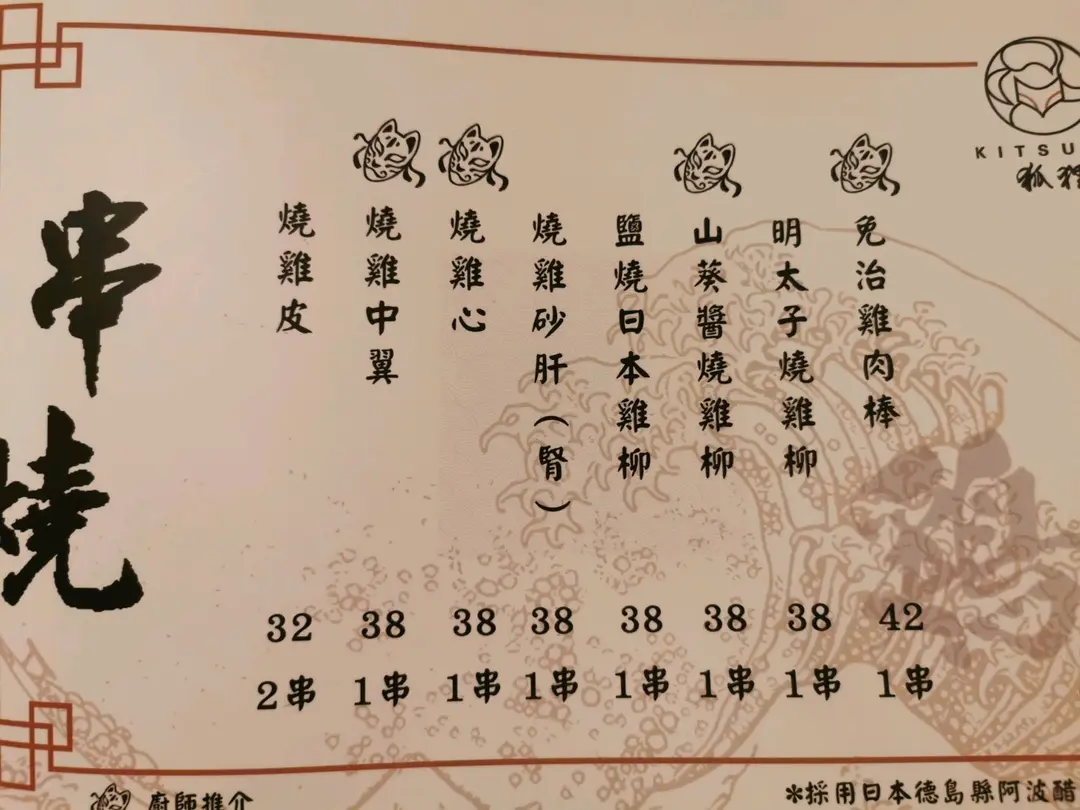 KITSU
狐狸
免治雞肉棒 42 1串
明太子燒雞柳 38 1串
山葵醬燒雞柳 38 1串
鹽燒日本雞柳 38 1串
燒雞砂肝(腎) 38 1串
燒雞心 38 1串
燒雞中翼 38 1串
燒雞皮 32 2串
串燒
廚師推介
*採用日本德島縣阿波醋